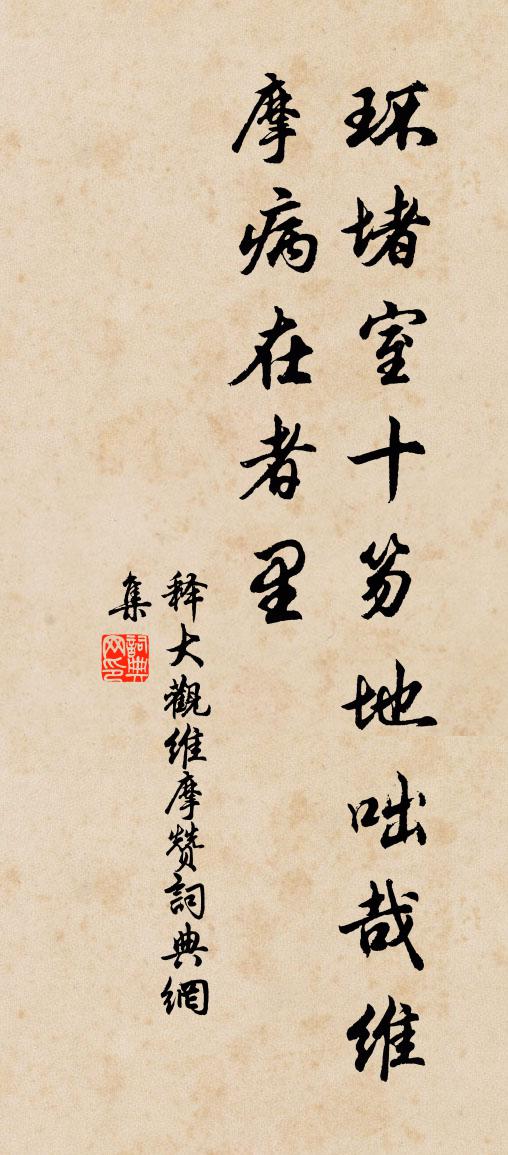 环堵室十笏地咄哉维
摩病在者里
释大觀维摩赞詞典網
集
詞典网印